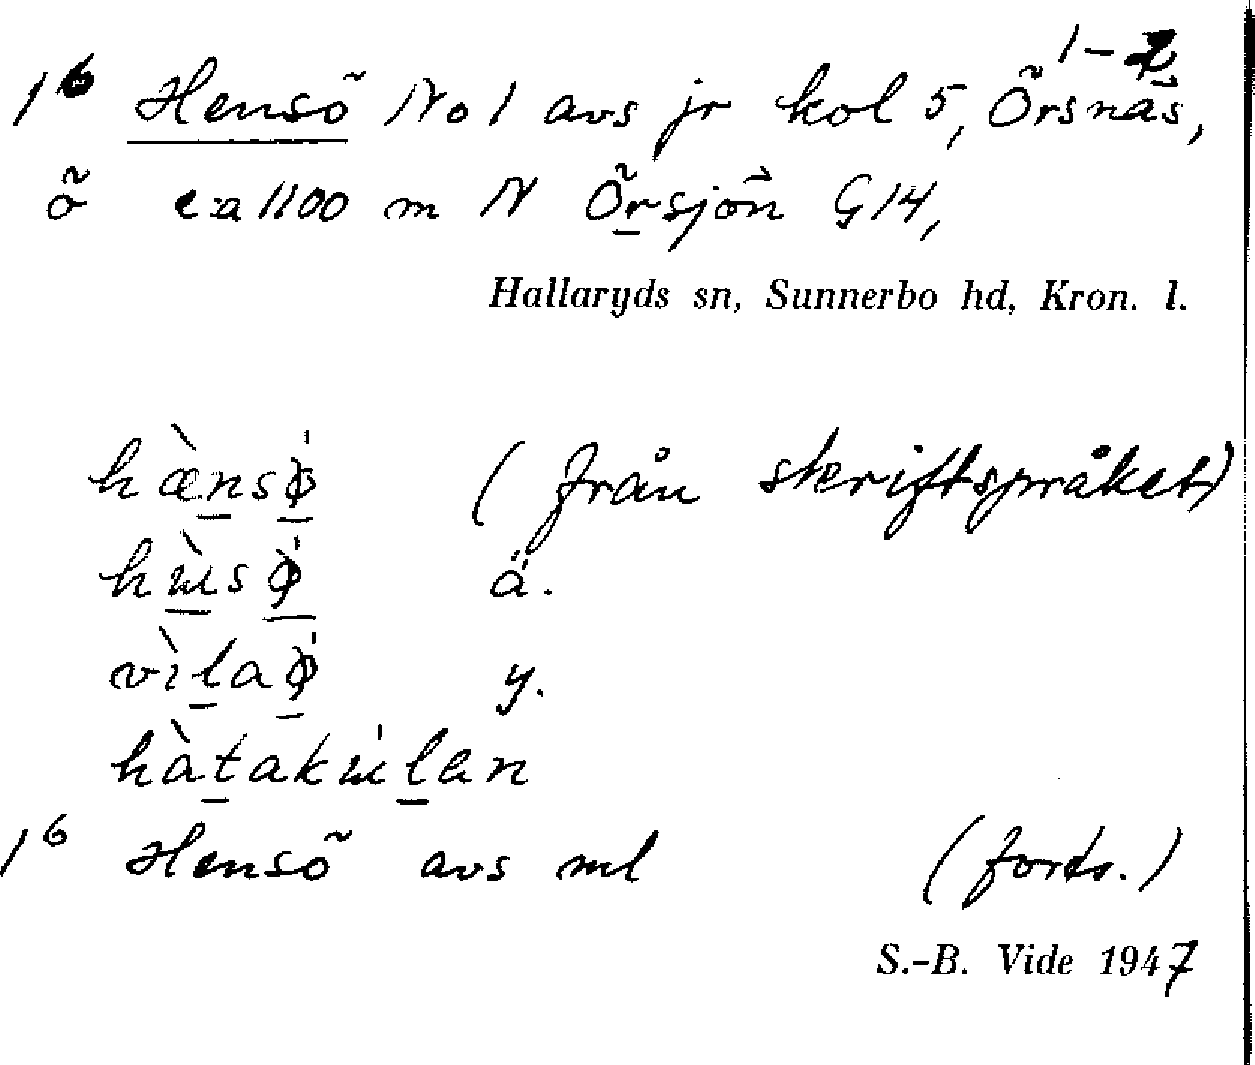 1-2
1⁶ Hensö No 1 avs jr kol 5, Örsnäs,
ö ca 1100 m N Örsjön G14,
Hallaryds sn, Sunnerbo hd, Kron. l.
hæ̀nsø̍ (från skriftspråket)
hɯ̀sø̍ ä.
vìlaø̍ y.
hàtakɯ̍lan
1⁶ Hensö avs ml (forts.)
S.-B. Vide 1947